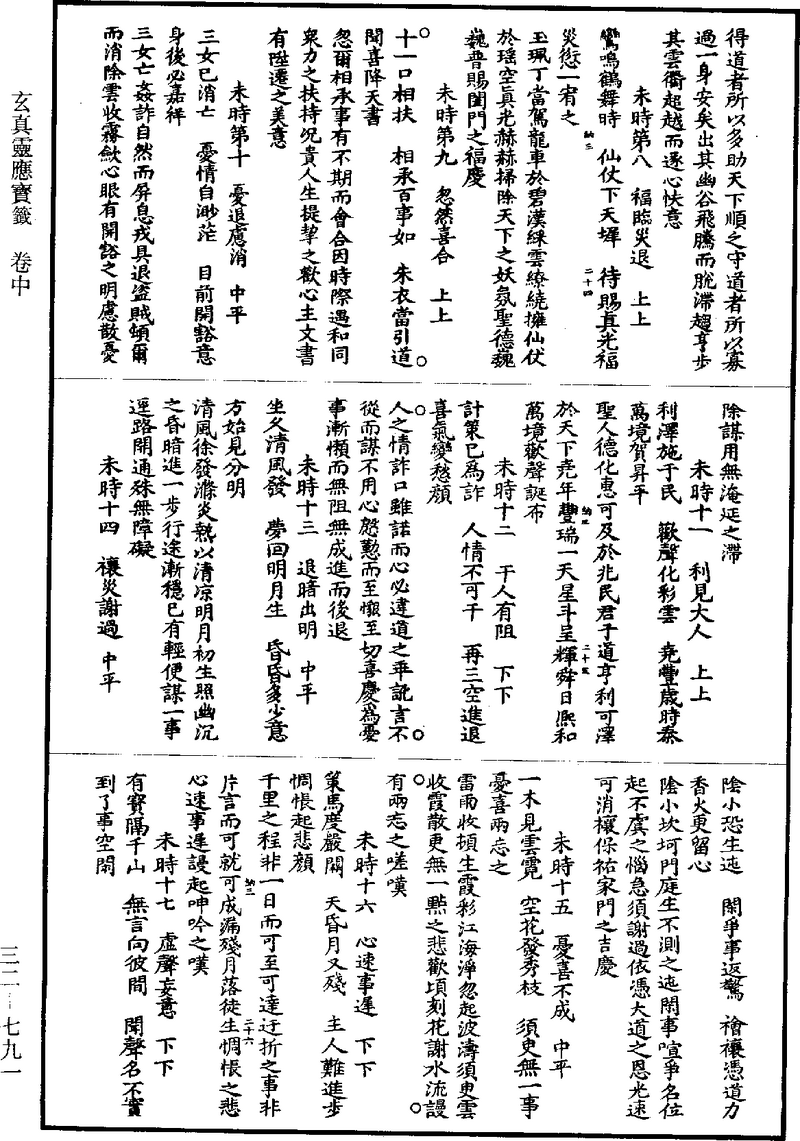 玄真靈應寶籤　卷中
三二—七九一
得道者所以多助天下順之守道者所以寡
過一身安矣出其幽谷飛騰而脫滯趨亨步
其雲衢起越而遂心快意
未時第八　福臨災退　上上
鸞鳴鶴舞時　仙仗下天墀　待賜真光福
災愆一宥之
納三
二十四
玉珮丁當駕龍車於碧漢綵雲繚繞擁仙伏
於瑶空真光赫赫掃除天下之妖氛聖德巍
巍普賜閨門之福慶
未時第九　忽然喜合　上上
十一口相扶　相承百事如　朱衣當引道
聞喜降天書
忽爾相承事有不期而會合因時際遇和同
衆力之扶持況貴人生提挈之歡心主文書
有陞遷之美意
未時第十　憂退慮消　中平
三女已消亡　憂情自渺茫　目前開豁意
身後必嘉祥
三女亡姦詐自然而屏息戎具退盜賊頓爾
而消除雲收霧斂心眼有開豁之明慮散憂
除謀用無淹延之滯
未時十一　利見大人　上上
利澤施于民　歡聲化彩雲　堯豐歲時泰
萬境賀昇平
聖人德化惠可及於兆民君子道亨利可澤
於天下堯年豐瑞一天星斗呈輝舜日熙和
萬境歡聲誕布
納三
二十五
未時十二　干人有阻　下下
計策已爲詐　人情不可干　再三空進退
喜氣變愁顏
人之情詐口雖諾而心必違道之乖訛言不
從而謀不用心慇懃而至懶至切喜慶爲憂
事漸懶而無阻無成進而後退
未時十三　退暗出明　中平
坐久清風發　夢回明月生　昏昏多少意
方始見分明
清風徐發滌炎熱以清凉明月初生照幽沉
之昏暗進一步行途漸穩已有輕便謀一事
逕路開通殊無障礙
未時十四　禳災謝過　中平
陰小恐生迍　閙爭事返驚　禬禳憑道力
香火更留心
陰小坎坷門庭生不測之迍閙事喧爭名位
起不虞之惱急須謝過依憑大道之恩光速
可消禳保祐家門之吉慶
未時十五　憂喜不成　中平
一木見雲霓　空花發秀枝　須臾無一事
憂喜兩忘之
雷雨收頓生霞彩江海淨忽起波濤須臾雲
收霞散更無一點之悲歡頃刻花謝水流謾
有兩忘之嗟嘆
未時十六　心速事遲　下下
策馬度嚴關　天昏月又殘　主人難進步
惆悵起悲顏
千里之程非一日而可至可達迂折之事非
片言而可就可成漏殘月落徒生惆悵之悲
心速事遲謾起呻吟之嘆
納三
二十六
未時十七　虛聲妄意　下下
有寶隔千山　無言向彼間　聞聲名不實
到了事空閑